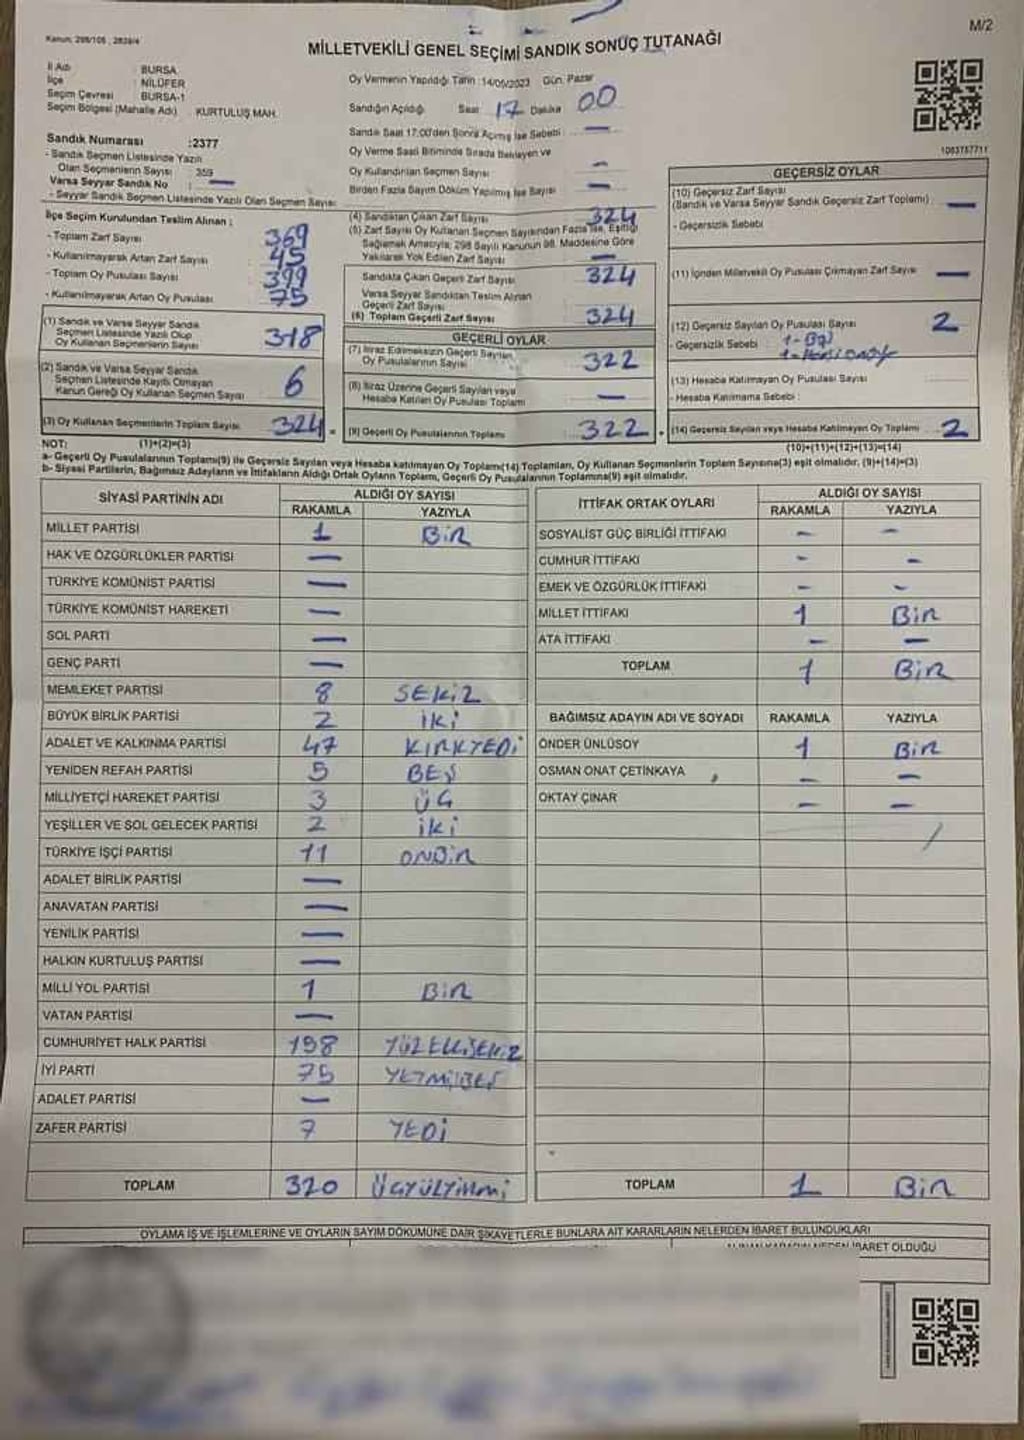 M/2
Kanun: 298/105 , 2839/4
MİLLETVEKİLİ GENEL SEÇİMİ SANDIK SONUÇ TUTANAĞI
İl Adı : BURSA
İlçe : NİLÜFER
Seçim Çevresi : BURSA-1
Seçim Bölgesi (Mahalle Adı) : KURTULUŞ MAH.
Oy Vermenin Yapıldığı Tarih : 14/05/2023 Gün: Pazar
Sandığın Açıldığı Saat 17 Dakika 00
Sandık Saat 17:00'den Sonra Açılmış İse Sebebi : —
Oy Verme Saati Bitiminde Sırada Bekleyen ve
Oy Kullandırılan Seçmen Sayısı —
Birden Fazla Sayım Döküm Yapılmış İse Sayısı —
1083757711
Sandık Numarası :2377
- Sandık Seçmen Listesinde Yazılı
Olan Seçmenlerin Sayısı : 359
Varsa Seyyar Sandık No : —
- Seyyar Sandık Seçmen Listesinde Yazılı Olan Seçmen Sayısı
İlçe Seçim Kurulundan Teslim Alınan ;
- Toplam Zarf Sayısı 369
- Kullanılmayarak Artan Zarf Sayısı 45
- Toplam Oy Pusulası Sayısı 399
- Kullanılmayarak Artan Oy Pusulası 75
(1) Sandık ve Varsa Seyyar Sandık
Seçmen Listesinde Yazılı Olup
Oy Kullanan Seçmenlerin Sayısı 318
(2) Sandık ve Varsa Seyyar Sandık
Seçmen Listesinde Kayıtlı Olmayan
Kanun Gereği Oy Kullanan Seçmen Sayısı 6
(3) Oy Kullanan Seçmenlerin Toplam Sayısı 324 =
(4) Sandıktan Çıkan Zarf Sayısı 324
(5) Zarf Sayısı Oy Kullanan Seçmen Sayısından Fazla İse, Eşitliği
Sağlamak Amacıyla; 298 Sayılı Kanunun 98. Maddesine Göre
Yakılarak Yok Edilen Zarf Sayısı —
Sandıkta Çıkan Geçerli Zarf Sayısı 324
Varsa Seyyar Sandıktan Teslim Alınan
Geçerli Zarf Sayısı
(6) Toplam Geçerli Zarf Sayısı 324
GEÇERLİ OYLAR
(7) İtiraz Edilmeksizin Geçerli Sayılan
Oy Pusulalarının Sayısı 322
(8) İtiraz Üzerine Geçerli Sayılan veya
Hesaba Katılan Oy Pusulası Toplamı —
(9) Geçerli Oy Pusulalarının Toplamı 322 +
GEÇERSİZ OYLAR
(10) Geçersiz Zarf Sayısı
(Sandık ve Varsa Seyyar Sandık Geçersiz Zarf Toplamı) —
- Geçersizlik Sebebi :
(11) İçinden Milletvekili Oy Pusulası Çıkmayan Zarf Sayısı —
(12) Geçersiz Sayılan Oy Pusulası Sayısı 2
- Geçersizlik Sebebi :
(13) Hesaba Katılmayan Oy Pusulası Sayısı
- Hesaba Katılmama Sebebi :
(14) Geçersiz Sayılan veya Hesaba Katılmayan Oy Toplamı 2
NOT: (1)+(2)=(3)
(10)+(11)+(12)+(13)=(14)
a- Geçerli Oy Pusulalarının Toplamı(9) ile Geçersiz Sayılan veya Hesaba katılmayan Oy Toplamı(14) Toplamları, Oy Kullanan Seçmenlerin Toplam Sayısına(3) eşit olmalıdır. (9)+(14)=(3)
b- Siyasi Partilerin, Bağımsız Adayların ve İttifakların Aldığı Ortak Oyların Toplamı, Geçerli Oy Pusulalarının Toplamına(9) eşit olmalıdır.
SİYASİ PARTİNİN ADI ALDIĞI OY SAYISI
RAKAMLA YAZIYLA
MİLLET PARTİSİ 1 BİR
HAK VE ÖZGÜRLÜKLER PARTİSİ —
TÜRKİYE KOMÜNİST PARTİSİ —
TÜRKİYE KOMÜNİST HAREKETİ —
SOL PARTİ —
GENÇ PARTİ —
MEMLEKET PARTİSİ 8 SEKİZ
BÜYÜK BİRLİK PARTİSİ 2 İKİ
ADALET VE KALKINMA PARTİSİ 47 KIRKYEDİ
YENİDEN REFAH PARTİSİ 5 BEŞ
MİLLİYETÇİ HAREKET PARTİSİ 3 ÜÇ
YEŞİLLER VE SOL GELECEK PARTİSİ 2 İKİ
TÜRKİYE İŞÇİ PARTİSİ 11 ONBİR
ADALET BİRLİK PARTİSİ —
ANAVATAN PARTİSİ —
YENİLİK PARTİSİ —
HALKIN KURTULUŞ PARTİSİ —
MİLLİ YOL PARTİSİ 1 BİR
VATAN PARTİSİ —
CUMHURİYET HALK PARTİSİ 158 YÜZELLİSEKİZ
İYİ PARTİ 75 YETMİŞBEŞ
ADALET PARTİSİ —
ZAFER PARTİSİ 7 YEDİ
TOPLAM 320 ÜÇYÜZYİRMİ
İTTİFAK ORTAK OYLARI ALDIĞI OY SAYISI
RAKAMLA YAZIYLA
SOSYALİST GÜÇ BİRLİĞİ İTTİFAKI — —
CUMHUR İTTİFAKI — —
EMEK VE ÖZGÜRLÜK İTTİFAKI — —
MİLLET İTTİFAKI 1 BİR
ATA İTTİFAKI — —
TOPLAM 1 BİR
BAĞIMSIZ ADAYIN ADI VE SOYADI RAKAMLA YAZIYLA
ÖNDER ÜNLÜSOY 1 BİR
OSMAN ONAT ÇETİNKAYA — —
OKTAY ÇINAR — —
TOPLAM 1 BİR
OYLAMA İŞ VE İŞLEMLERİNE VE OYLARIN SAYIM DÖKÜMÜNE DAİR ŞİKAYETLERLE BUNLARA AİT KARARLARIN NELERDEN İBARET BULUNDUKLARI
ALINAN KARARIN NEDEN İBARET OLDUĞU